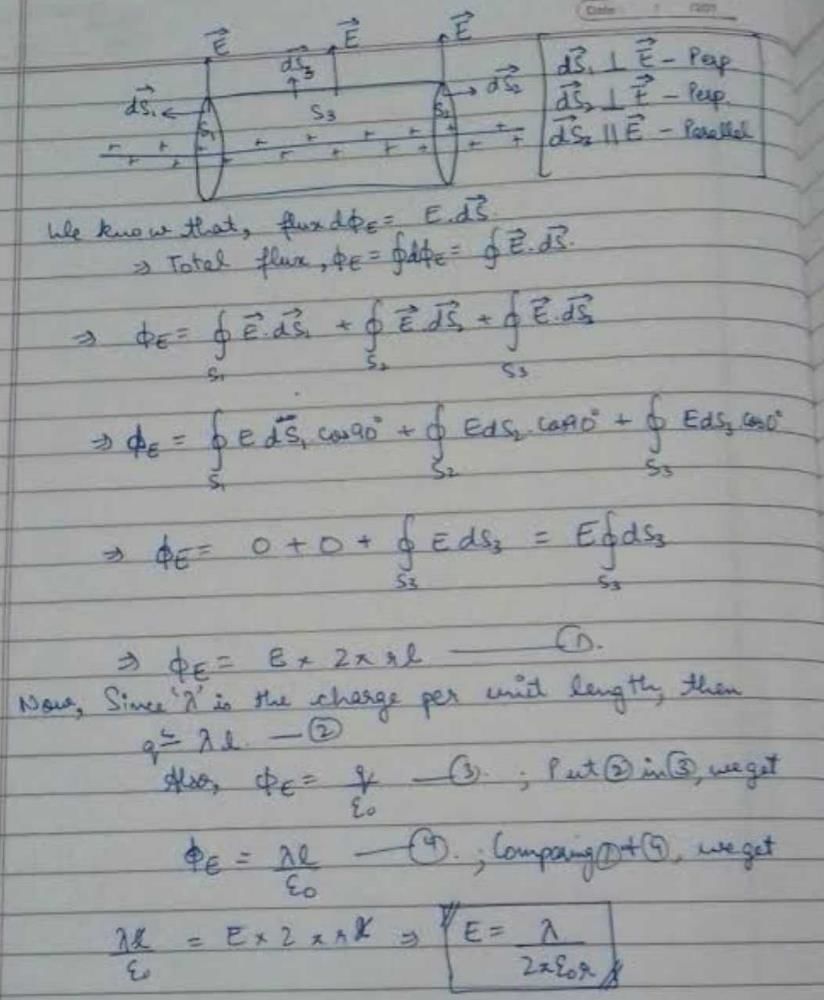 Date
E⃗ E⃗ E⃗
dS⃗₁ dS⃗₃ dS⃗₂
S₁ S₃ S₂
dS⃗₁ ⊥ E⃗ - Perp
dS⃗₂ ⊥ E⃗ - Perp.
dS⃗₂ || E⃗ - Parallel
We know that, flux dϕE = E.dS⃗
⇒ Total flux, ϕE = ∮dϕE = ∮E⃗.dS⃗.
⇒ ϕE = ∮S₁ E⃗.dS⃗₁ + ∮S₂ E⃗.dS⃗₂ + ∮S₃ E⃗.dS⃗₃
⇒ ϕE = ∮S₁ E dS⃗₁ cos90° + ∮S₂ EdS₂.cos90° + ∮S₃ EdS₃ cos0°
⇒ ϕE = 0 + 0 + ∮S₃ E dS₃ = E∮S₃ dS₃
⇒ ϕE = E × 2πrl — ①.
Now, Since 'λ' is the charge per unit length, then
q = λl. — ②
Also, ϕE = q/ε₀ — ③. ; Put ② in ③, we get
ϕE = λl/ε₀ — ④. ; Comparing ① + ④, we get
λl/ε₀ = E × 2πrl ⇒ E = λ/2πε₀r